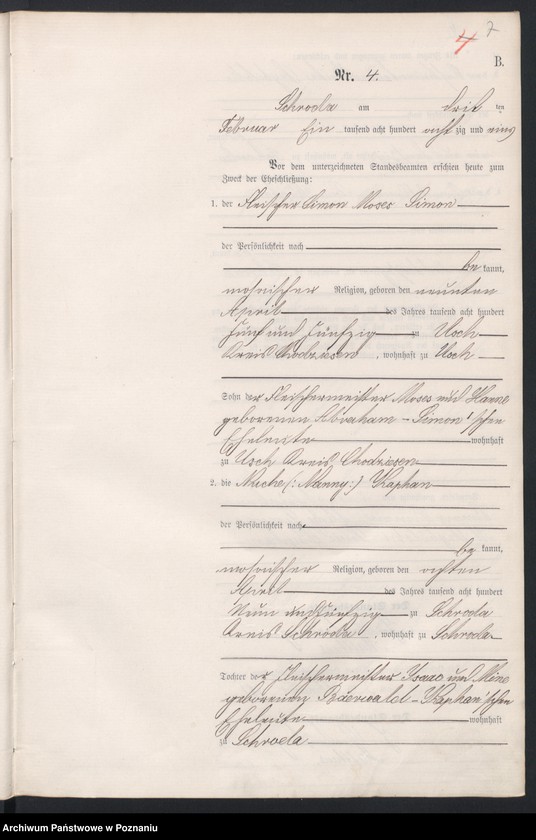 4 7
B.
Nr. 4.
Schroda am drit ten
Februar Ein tausend acht hundert acht zig und eins
Vor dem unterzeichneten Standesbeamten erschien heute zum
Zweck der Eheschließung:
1. der Fleischer Simon Moses Simon
der Persönlichkeit nach
be kannt,
mosaischer Religion, geboren den neunten
April des Jahres tausend acht hundert
fünf und fünfzig zu Usch
Kreis Chodziesen, wohnhaft zu Usch
Sohn der Fleischermeister Moses und Hanne
geborenen Abraham - Simon'schen
Eheleute wohnhaft
zu Usch Kreis Chodziesen
2. die Miche (: Nanny :) Kaphan
der Persönlichkeit nach
be kannt,
mosaischer Religion, geboren den achten
April des Jahres tausend acht hundert
Neun und fünfzig zu Schroda
Kreis Schroda, wohnhaft zu Schroda
Tochter der Fleischermeister Isaac und
geborenen Baerwald - Kaphan'schen
Eheleute wohnhaft
zu Schroda
Archiwum Państwowe w Poznaniu